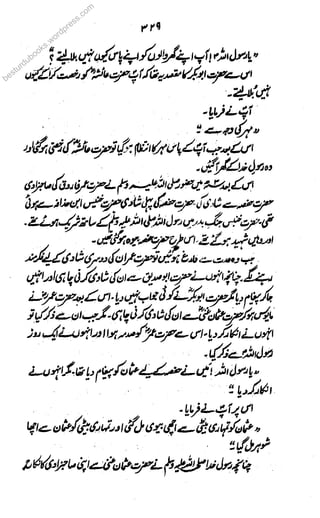 ۳۲۹
"یا رسول اللہ! آپ اپنے گھر والوں کو اپنے پاس کیوں نہیں بلا لیتے؟"
اس سے حضرت ابوبکرؓ کا مقصد یہ تھا کہ آپ حضرت عائشہؓ کو رخصت کرا کے کیوں
نہیں بلا لیتے۔
آپ نے فرمایا۔
"مہر کی وجہ سے"
اس کے بعد جب آپ کے پاس مہر کا انتظام ہو گیا تو حضرت عائشہؓ کی رخصتی ہو گئی اور
وہ رسول خدا کے گھر آ گئیں۔
اس کے بعد میں حضور صلی اللہ علیہ وسلم نے حضرت عمر فاروقؓ کی صاحبزادی
حضرت حفصہ سے شادی کی۔ حضرت حفصہؓ کی پہلی شادی حضرت خنیس ابن حذافہ سے ہوئی
تھی۔ حضرت خنیس جنگ بدر میں رسول اللہ صلی اللہ علیہ وسلم کے ساتھ شریک ہوئے تھے۔
اور وہیں شہید ہو گئے تھے۔ اس طرح حضرت حفصہ بیوہ ہو گئی تھیں۔
جب وہ عدت سے فارغ ہو گئیں تو حضرت عمرؓ ان کی دوسری شادی کے لئے فکرمند
رہنے لگے۔ چنانچہ انہوں نے حضرت ابوبکر صدیق سے ان کی شادی کرنی چاہی اور انہیں
جا کر پیغام دیا مگر حضرت ابوبکرؓ نے کوئی جواب نہیں دیا۔ اس کے بعد حضرت عمرؓ نے
مایوس ہو کر حضرت عثمان غنیؓ سے ان کی شادی کرنی چاہی۔ مگر جب ان سے ذکر کیا تو
انہوں نے انکار کر دیا۔ اس سے حضرت عمرؓ کو صدمہ ہوا اور انہوں نے ایک روز
رسول اللہؐ سے ذکر کیا۔
"یا رسول اللہ! میں نے حفصہ کے لئے عثمان کو پیغام دیا تھا۔ مگر انہوں نے
انکار کر دیا"
اس پر آپ نے فرمایا۔
"عثمان کو تمہاری بیٹی سے اچھی بیوی مل گئی اور تمہاری بیٹی کو عثمان سے اچھا
شوہر مل گیا"
چنانچہ رسول خدا صلی اللہ علیہ وسلم نے حضرت عثمان غنی سے اپنی صاحبزادی کا نکاح کر
besturdubooks.wordpress.com